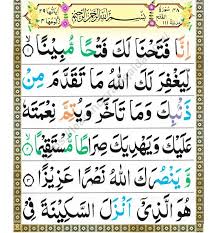 بِسْمِ اللّٰهِ الرَّحْمٰنِ الرَّحِيْمِ
اِنَّا فَتَحْنَا لَكَ فَتْحًا مُّبِيْنًا
لِّيَغْفِرَ لَكَ اللّٰهُ مَا تَقَدَّمَ مِنْ
ذَنْۢبِكَ وَمَا تَاَخَّرَ وَيُتِمَّ نِعْمَتَهٗ
عَلَيْكَ وَيَهْدِيَكَ صِرَاطًا مُّسْتَقِيْمًا
وَّيَنْصُرَكَ اللّٰهُ نَصْرًا عَزِيْزًا
هُوَ الَّذِيْۤ اَنْزَلَ السَّكِيْنَةَ فِيْ